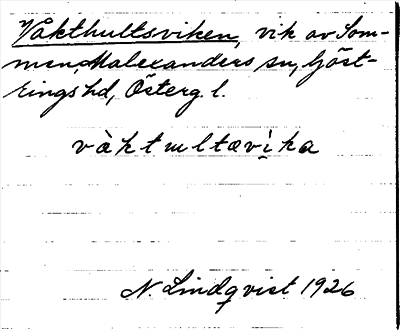 Vakthultsviken, vik av Som-
men, Malexanders sn, Göst-
rings hd, Österg. l.
vàktultævịka
N. Lindqvist 1926